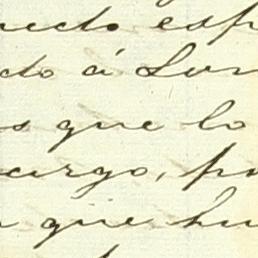 ecto esp
do á Lun
s que lo
cargo, p
que hu